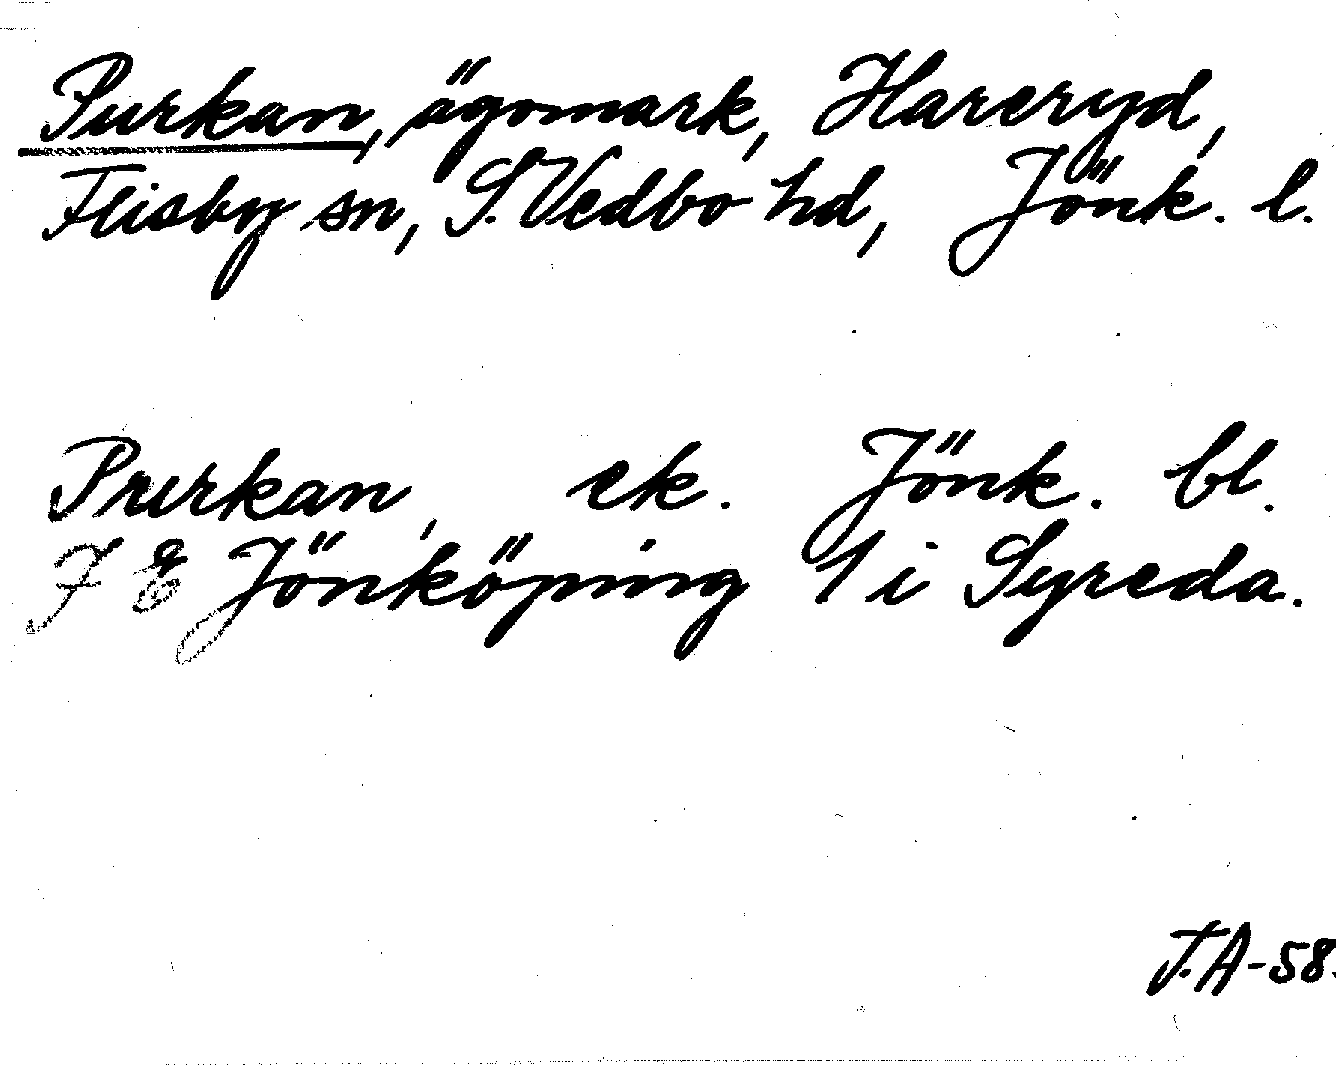 Purkan, ägomark, Hareryd,
Flisby sn, S. Vedbo hd, Jönk. l.
Prurkan, ek. Jönk. bl.
J E Jönköping 1 i Syreda.
J.A-58.